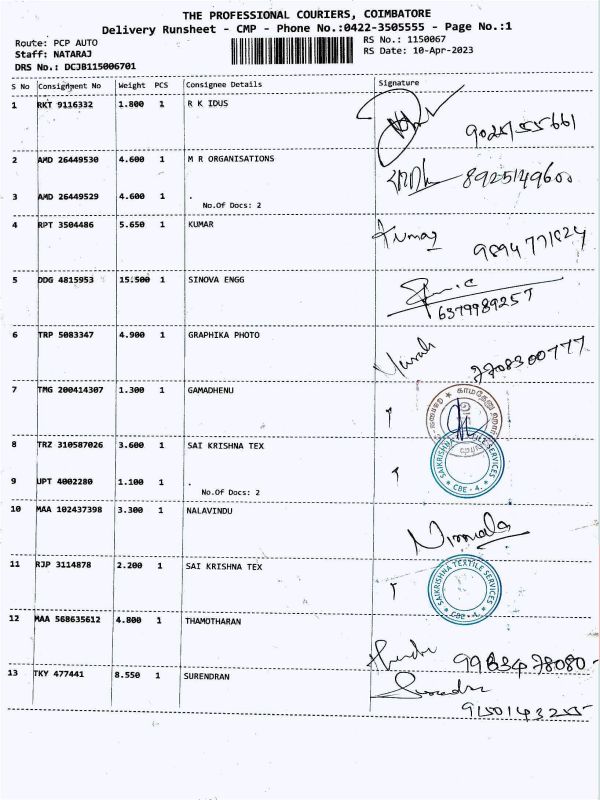 THE PROFESSIONAL COURIERS, COIMBATORE
Delivery Runsheet - CMP - Phone No.:0422-3505555 - Page No.:1
Route: PCP AUTO
RS No.: 1150067
Staff: NATARAJ
RS Date: 10-Apr-2023
DRS No.: DCJB115006701
S No Consignment No Weight PCS Consignee Details Signature
1 RKT 9116332 1.800 1 R K IDUS
2 AMD 26449530 4.600 1 M R ORGANISATIONS 8925149600
3 AMD 26449529 4.600 1 .
No.Of Docs: 2
4 RPT 3504486 5.650 1 KUMAR Kumar
9894771824
5 DDG 4815953 15.500 1 SINOVA ENGG
6379989257
6 TRP 5083347 4.900 1 GRAPHIKA PHOTO
7708300777
7 TMG 200414307 1.300 1 GAMADHENU
8 TRZ 310587026 3.600 1 SAI KRISHNA TEX SAIKRISHNA TEXTILE SERVICES
* CBE - 4. *
9 UPT 4002280 1.100 1 .
No.Of Docs: 2
10 MAA 102437398 3.300 1 NALAVINDU Nirmala
11 RJP 3114878 2.200 1 SAI KRISHNA TEX SAIKRISHNA TEXTILE SERVICES
* CBE - 4. *
12 MAA 568635612 4.800 1 THAMOTHARAN
13 TKY 477441 8.550 1 SURENDRAN